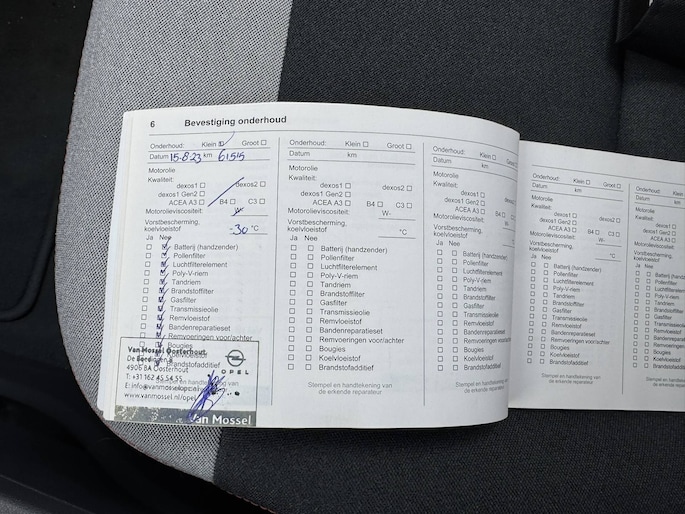 6 Bevestiging onderhoud
Onderhoud: Klein ☑ Groot ☐
Datum 15-8-23 km 61515
Motorolie
Kwaliteit:
dexos1 ☐ dexos2 ☐
dexos1 Gen2 ☐
ACEA A3 ☐ B4 ☐ C3 ☐
Motorolieviscositeit: W-
Vorstbescherming,
koelvloeistof -30 °C
Ja Nee
☐ ☑ Batterij (handzender)
☐ ☑ Pollenfilter
☐ ☑ Luchtfilterelement
☐ ☑ Poly-V-riem
☐ ☑ Tandriem
☐ ☑ Brandstoffilter
☐ ☑ Gasfilter
☐ ☑ Transmissieolie
☐ ☑ Remvloeistof
☐ ☑ Bandenreparatieset
☐ ☑ Remvoeringen voor/achter
☐ ☑ Bougies
Koelvloeistof
Brandstofadditief
Van Mossel Oosterhout
4906 BA Oosterhout
OPEL
T: +31 162 45 54 55
www.vanmossel.nl/opel
Van Mossel
Onderhoud: Klein ☐ Groot ☐
Datum km
Motorolie
Kwaliteit:
dexos1 ☐ dexos2 ☐
dexos1 Gen2 ☐
ACEA A3 ☐ B4 ☐ C3 ☐
Motorolieviscositeit: W-
Vorstbescherming,
koelvloeistof °C
Ja Nee
☐ ☐ Batterij (handzender)
☐ ☐ Pollenfilter
☐ ☐ Luchtfilterelement
☐ ☐ Poly-V-riem
☐ ☐ Tandriem
☐ ☐ Brandstoffilter
☐ ☐ Gasfilter
☐ ☐ Transmissieolie
☐ ☐ Remvloeistof
☐ ☐ Bandenreparatieset
☐ ☐ Remvoeringen voor/achter
☐ ☐ Bougies
☐ ☐ Koelvloeistof
☐ ☐ Brandstofadditief
Stempel en handtekening van
de erkende reparateur
Onderhoud: Klein ☐ Groot ☐
Datum km
Motorolie
Kwaliteit:
dexos1 ☐ dexos2 ☐
dexos1 Gen2 ☐
ACEA A3 ☐ B4 ☐ C3 ☐
Motorolieviscositeit: W-
Vorstbescherming,
koelvloeistof °C
Ja Nee
☐ ☐ Batterij (handzender)
☐ ☐ Pollenfilter
☐ ☐ Luchtfilterelement
☐ ☐ Poly-V-riem
☐ ☐ Tandriem
☐ ☐ Brandstoffilter
☐ ☐ Gasfilter
☐ ☐ Transmissieolie
☐ ☐ Remvloeistof
☐ ☐ Bandenreparatieset
☐ ☐ Remvoeringen voor/achter
☐ ☐ Bougies
☐ ☐ Koelvloeistof
☐ ☐ Brandstofadditief
Stempel en handtekening van
de erkende reparateur
Onderhoud: Klein ☐ Groot ☐
Datum km
Motorolie
Kwaliteit:
dexos1 ☐ dexos2 ☐
dexos1 Gen2 ☐
ACEA A3 ☐ B4 ☐ C3 ☐
Motorolieviscositeit: W-
Vorstbescherming,
koelvloeistof °C
Ja Nee
☐ ☐ Batterij (handzender)
☐ ☐ Pollenfilter
☐ ☐ Luchtfilterelement
☐ ☐ Poly-V-riem
☐ ☐ Tandriem
☐ ☐ Brandstoffilter
☐ ☐ Gasfilter
☐ ☐ Transmissieolie
☐ ☐ Remvloeistof
☐ ☐ Bandenreparatieset
☐ ☐ Remvoeringen voor/achter
☐ ☐ Bougies
☐ ☐ Koelvloeistof
☐ ☐ Brandstofadditief
Stempel en handtekening van
de erkende reparateur
Onderhoud:
Datum
Motorolie
Kwaliteit:
dexos1
dexos1 Gen2
ACEA A3
Motorolieviscositeit
Vorstbescherming,
koelvloeistof
Ja Nee
☐ ☐ Batterij
☐ ☐ Pollenfilter
☐ ☐ Poly-V-riem
☐ ☐ Tandriem
☐ ☐ Gasfilter
☐ ☐ Bougies